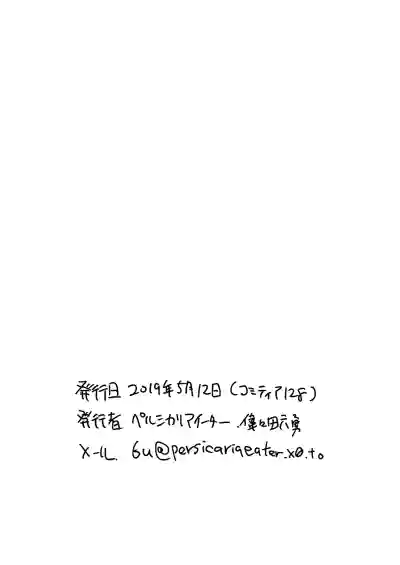 発行日 2019年5月12日(コミティア128)
発行者 ペルシカリアイーター.
メール. 6u@persicariaeater.x0.to